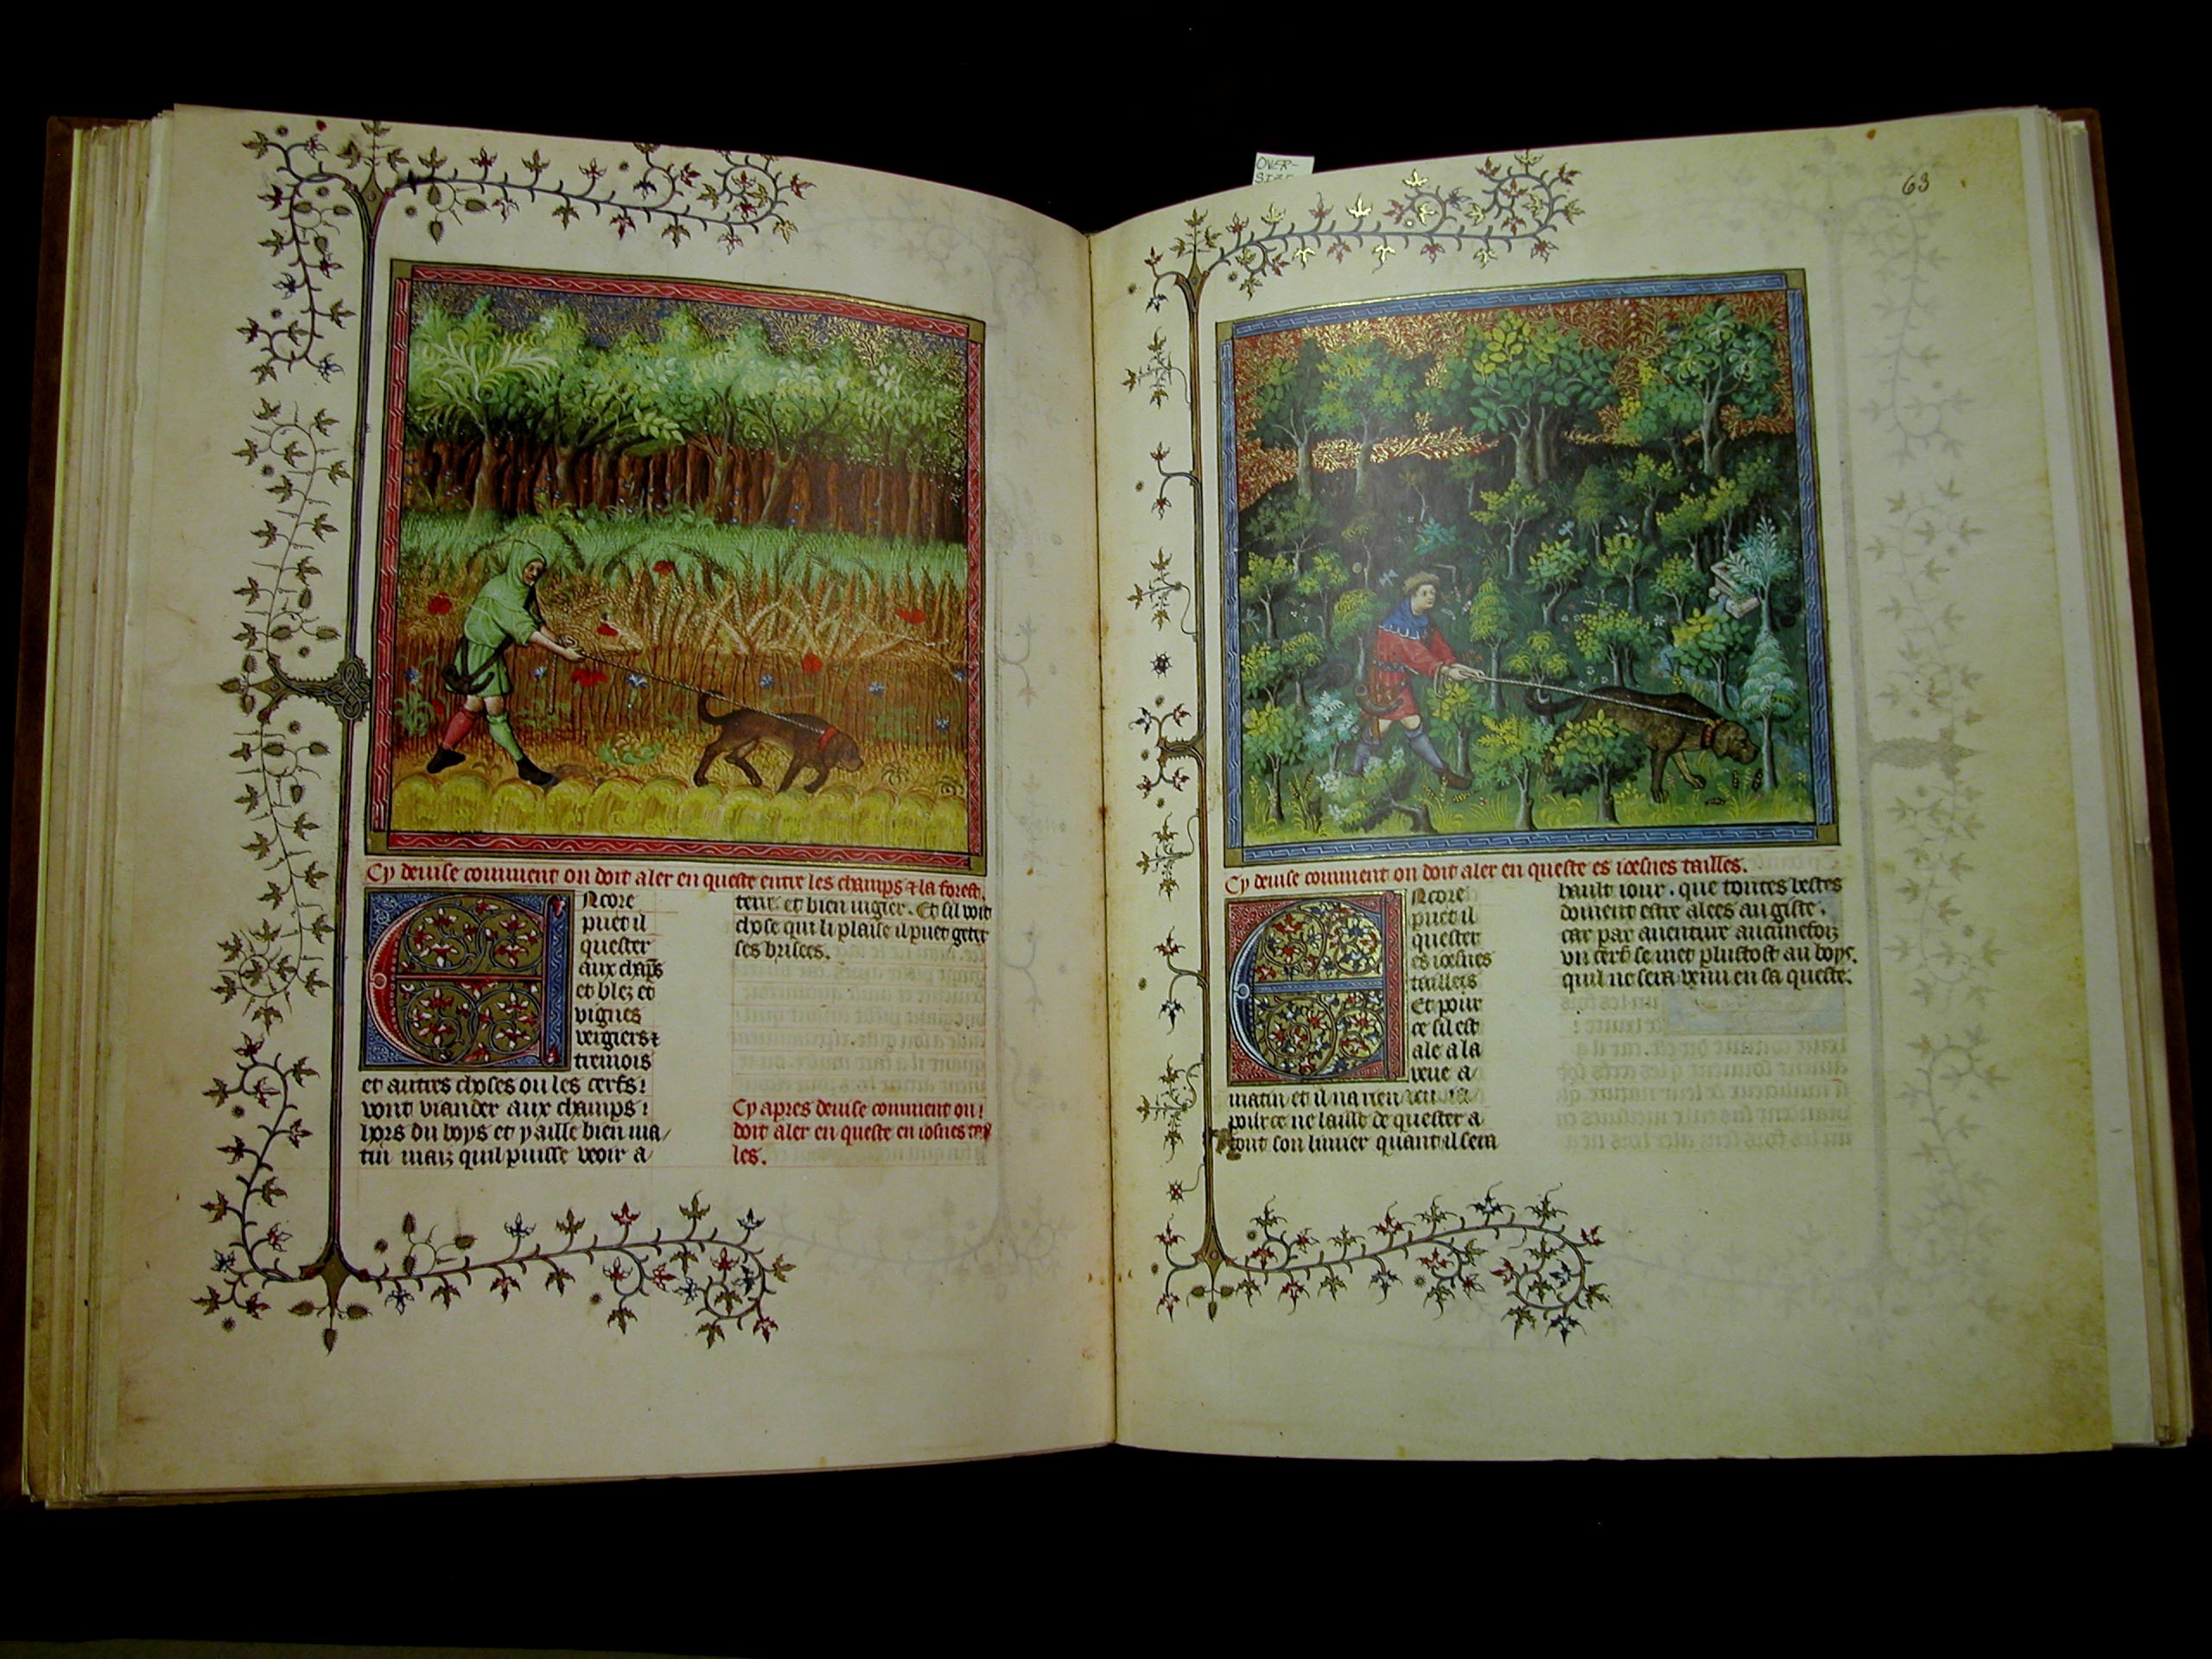 OVER-
SIZE
63
Cy deuise comment on doit aler en queste entre les champs & la forest.
Encore
puet il
quester
aux chāps
et blez et
vignes
vergiers &
tremois
et autres choses ou les cerfs
vont viander aux champs
hors du boys et y aille bien ma/
tin maiz quil puisse veoir a/
terre et bien iugier. Et sil voit
chose qui li plaise il puet geter
ses brisees.
Cy apres deuise comment on
doit aler en queste en iosnes tay
les.
Cy deuise comment on doit aler en queste es ioesnes tailles.
Encore
puet il
quester
es ioesnes
tailleis
Et pour
ce sil est
ale a la
veue au
matin et il na rien veu
pour ce ne laisse de quester a
tout son limier quant il sera
hault iour. que toutes bestes
doiuent estre alees au giste.
car par auenture aucunefoiz
un cerf se met plustost au boys.
quil ne sera venu en sa queste.